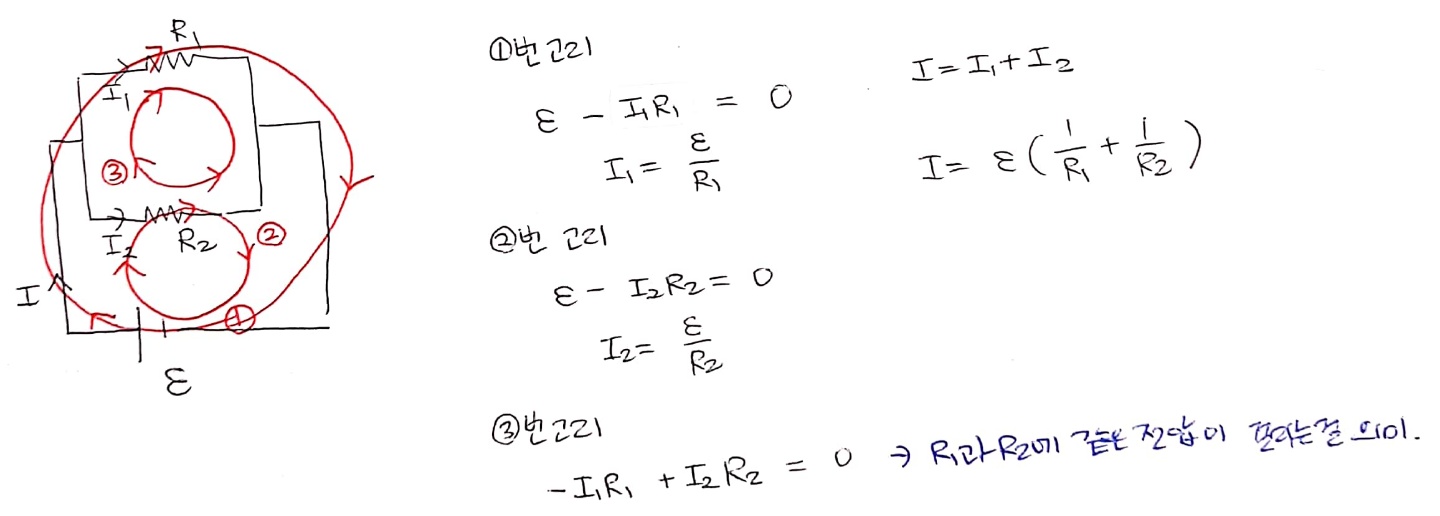 R₁
I₁
③
I₂
R₂
②
I
①
ε
①번 고리
ε - I₁R₁ = 0
I₁ = ε/R₁
I = I₁ + I₂
I = ε(1/R₁ + 1/R₂)
②번 고리
ε - I₂R₂ = 0
I₂ = ε/R₂
③번 고리
-I₁R₁ + I₂R₂ = 0 → R₁과 R₂에 같은 전압이 걸리는걸 의미.